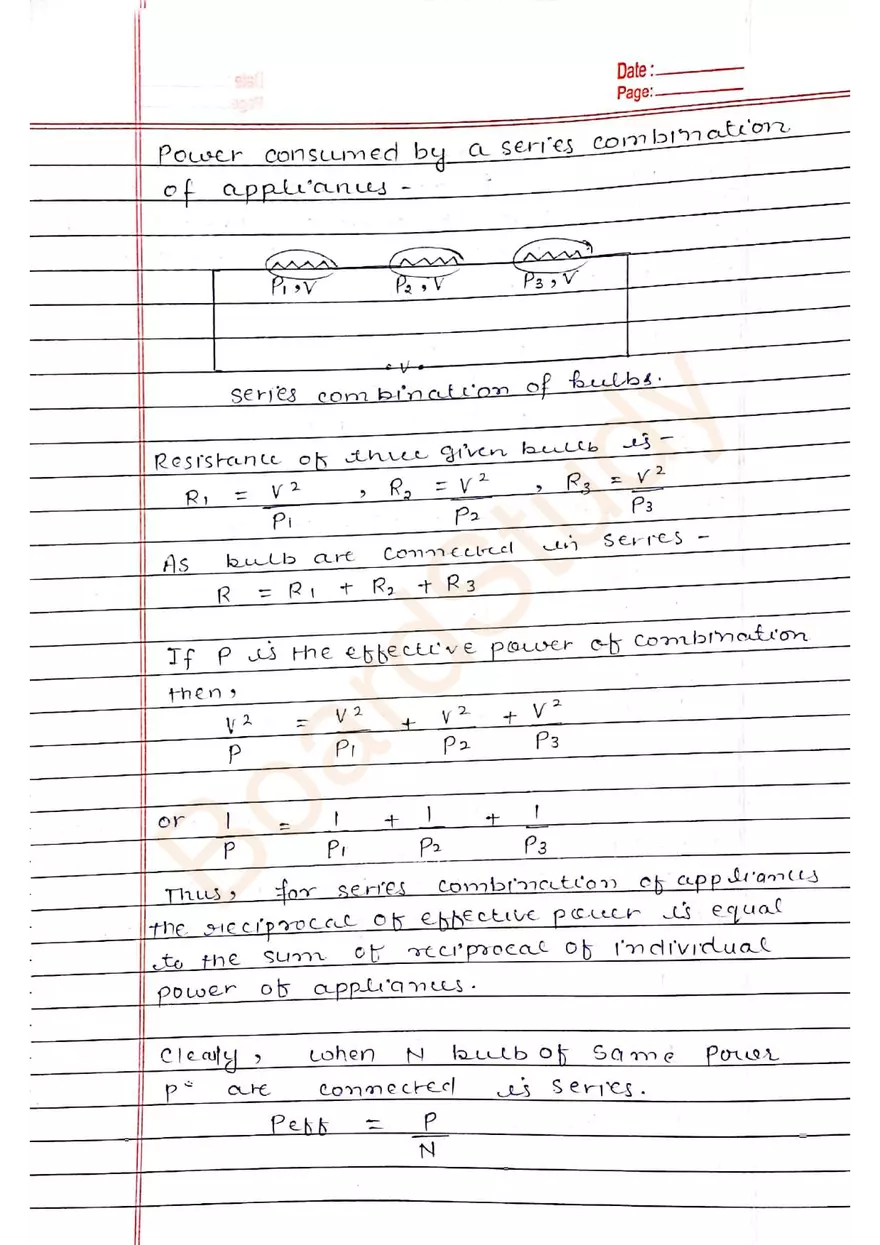 Date :
Page:
Power consumed by a series combination
of appliances -
P1, V P2, V P3, V
V
series combination of bulbs.
Resistance of three given bulb is -
R1 = V²/P1 , R2 = V²/P2 , R3 = V²/P3
As bulb are connected in series -
R = R1 + R2 + R3
If P is the effective power of combination
then,
V²/P = V²/P1 + V²/P2 + V²/P3
or 1/P = 1/P1 + 1/P2 + 1/P3
Thus, for series combination of appliances
the reciprocal of effective power is equal
to the sum of reciprocal of individual
power of appliances.
Clearly, when N bulb of same Power
P are connected is series.
Peff = P/N
BoardStudy